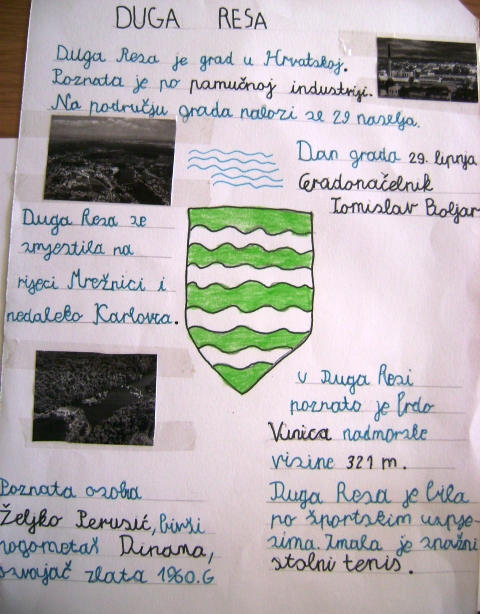 DUGA RESA
Duga Resa je grad u Hrvatskoj.
Poznata je po pamučnoj industriji.
Na području grada nalazi se 29 naselja.
Dan grada 29. lipnja
Gradonačelnik
Tomislav Boljar
Duga Resa se
smjestila na
rijeci Mrežnici i
nedaleko Karlovca.
U Dugoj Resi
poznato je brdo
Vinica nadmorske
visine 321 m.
Poznata osoba
Željko Perušić, bivši
nogometaš Dinama,
osvajač zlata 1960.G
Duga Resa je bila
po športskim uspje-
sima. Imala je snažni
stolni tenis.